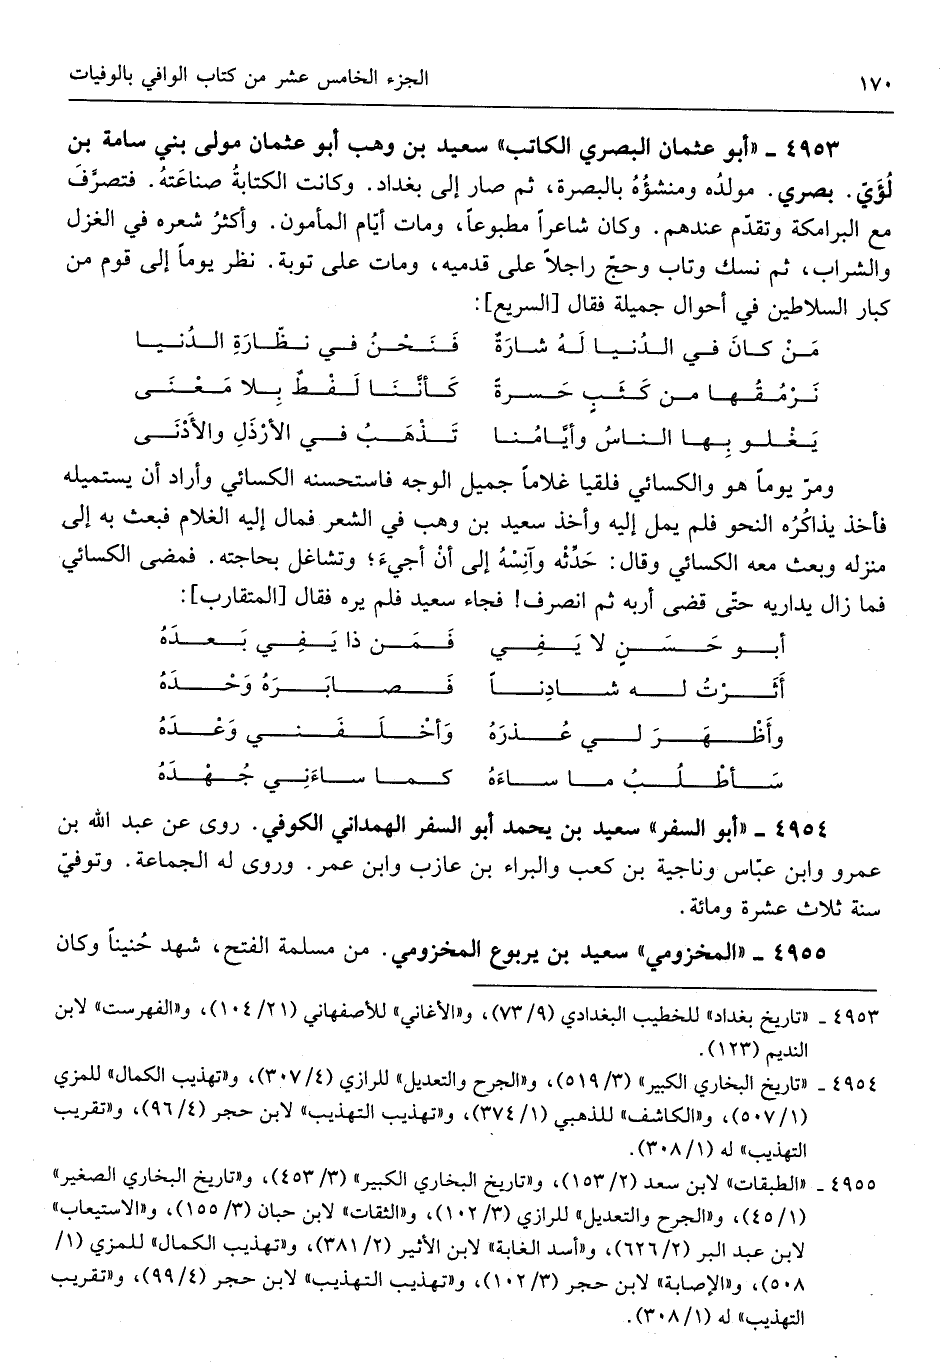 ١٧٠ الجزء الخامس عشر من كتاب الوافي بالوفيات
٤٩٥٣ ـ «أبو عثمان البصري الكاتب» سعيد بن وهب أبو عثمان مولى بني سامة بن
لُؤَيّ. بصري. مولدُه ومنشؤُهُ بالبصرة، ثم صار إلى بغداد. وكانت الكتابةُ صناعَتهُ. فتصرَّفَ
مع البرامكة وتقدّم عندهم. وكان شاعراً مطبوعاً، ومات أيّام المأمون. وأكثرُ شعره في الغزل
والشراب، ثم نسك وتاب وحجّ راجلاً على قدميه، ومات على توبة. نظر يوماً إلى قوم من
كبار السلاطين في أحوال جميلة فقال [السريع]:
مَنْ كانَ في الدُنيا لَهُ شارَةٌ فَنَحْنُ في نظّارَةِ الدُنيا
نَرْمُقُها من كَثَبٍ حَسرةً كَأنَّنَا لَفْظٌ بِلا مَعْنَى
يَعْلو بِها الناسُ وأيَّامُنا تَذْهَبُ في الأرْذَلِ والأَدْنَى
ومرّ يوماً هو والكسائي فلقيا غلاماً جميل الوجه فاستحسنه الكسائي وأراد أن يستميله
فأخذ يذاكُره النحو فلم يمل إليه وأخذ سعيد بن وهب في الشعر فمال إليه الغلام فبعث به إلى
منزله وبعث معه الكسائي وقال: حَدِّثْه وآنِسْهُ إلى أنْ أجيءَ؛ وتشاغل بحاجته. فمضى الكسائي
فما زال يداريه حتّى قضى أربه ثم انصرف! فجاء سعيد فلم يره فقال [المتقارب]:
أبو حَسَنٍ لا يَفِي فَمَن ذا يَفِي بَعدَهُ
أَثَرْتُ له شادِناً فَصابَرَهُ وَحْدَهُ
وأَظْهَرَ لي عُذرَهُ وَأخْلَفَني وَعْدَهُ
سَأطْلُبُ ما ساءَهُ كما ساءَنِي جُهْدَهُ
٤٩٥٤ ـ «أبو السفر» سعيد بن يحمد أبو السفر الهمداني الكوفي. روى عن عبد الله بن
عمرو وابن عبّاس وناجية بن كعب والبراء بن عازب وابن عمر. وروى له الجماعة. وتوفيّ
سنة ثلاث عشرة ومائة.
٤٩٥٥ ـ «المخزومي» سعيد بن يربوع المخزومي. من مسلمة الفتح، شهد حُنيناً وكان
٤٩٥٣ ـ «تاريخ بغداد» للخطيب البغدادي (٩/ ٧٣)، و«الأغاني» للأصفهاني (٢١/ ١٠٤)، و«الفهرست» لابن
النديم (١٢٣).
٤٩٥٤ ـ «تاريخ البخاري الكبير» (٣/ ٥١٩)، و«الجرح والتعديل» للرازي (٤/ ٣٠٧)، و«تهذيب الكمال» للمزي
(١/ ٥٠٧)، و«الكاشف» للذهبي (١/ ٣٧٤)، و«تهذيب التهذيب» لابن حجر (٤/ ٩٦)، و«تقريب
التهذيب» له (١/ ٣٠٨).
٤٩٥٥ ـ «الطبقات» لابن سعد (٢/ ١٥٣)، و«تاريخ البخاري الكبير» (٣/ ٤٥٣)، و«تاريخ البخاري الصغير»
(١/ ٤٥)، و«الجرح والتعديل» للرازي (٣/ ١٠٢)، و«الثقات» لابن حبان (٣/ ١٥٥)، و«الاستيعاب»
لابن عبد البر (٢/ ٦٢٦)، و«أسد الغابة» لابن الأثير (٢/ ٣٨١)، و«تهذيب الكمال» للمزي (١/
٥٠٨)، و«الإصابة» لابن حجر (٣/ ١٠٢)، و«تهذيب التهذيب» لابن حجر (٤/ ٩٩)، و«تقريب
التهذيب» له (١/ ٣٠٨).